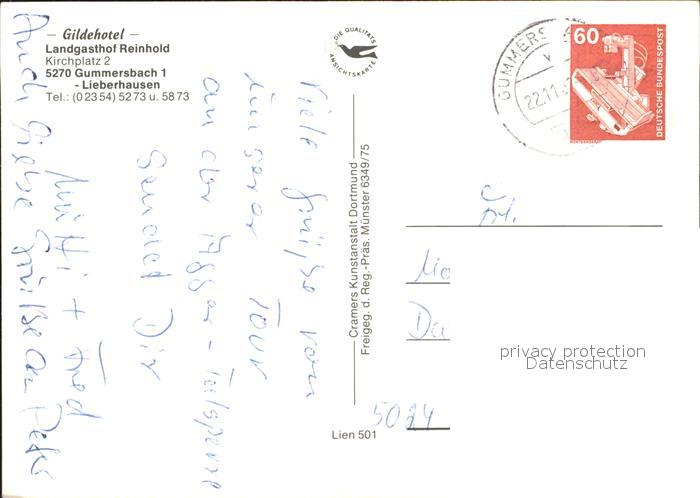 – Gildehotel –
Landgasthof Reinhold
Kirchplatz 2
5270 Gummersbach 1
- Lieberhausen
Tel.: (02354) 5273 u. 5873
DIE QUALITÄTS
ANSICHTSKARTE
GUMMERS
22.11.
60
DEUTSCHE BUNDESPOST
Viele Grüße von
unserer Tour
an der Agger-Talsperre
sendet Dir
Mutti + Fred
Auch liebe Grüße an Peter
Cramers Kunstanstalt Dortmund
Freigeg. d. Reg.-Präs. Münster 6349/75
Frl.
Mo
Da
privacy protection
Datenschutz
5024
Lien 501